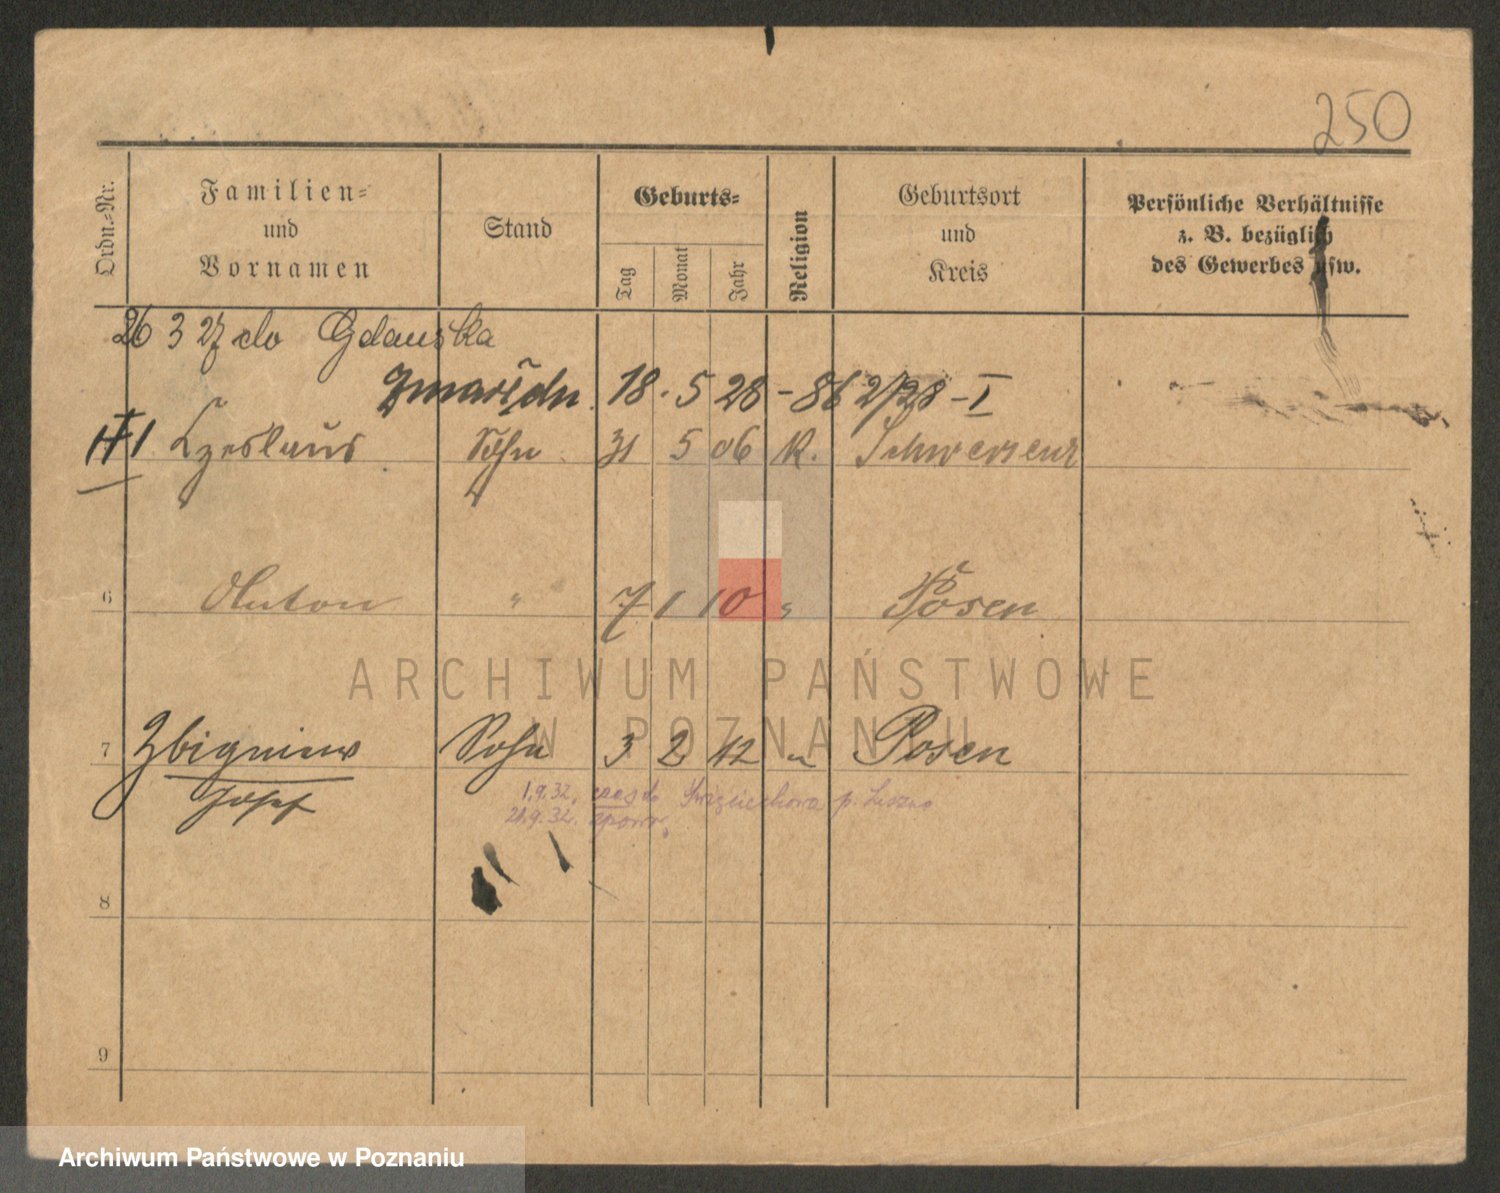 250
Ordn.=Nr.
Familien=
und
Vornamen
Stand
Geburts=
Tag
Monat
Jahr
Religion
Geburtsort
und
Kreis
Persönliche Verhältnisse
z. B. bezüglich
des Gewerbes usw.
26 3 27 do Gdańska
Zmarł dn. 18. 5 28 - 862/28 - I
1 Czeslaus Sohn 31 5 06 K. Schwersenz
6 Anton " 7 1 10 " Posen
ARCHIWUM PAŃSTWOWE
W POZNANIU
7 Zbigniew Sohn 3 2 12 " Posen
Josef
1.9.32. czas do Święciechowa p. Leszno
21.9.32. zpowr.
8
9
Archiwum Państwowe w Poznaniu